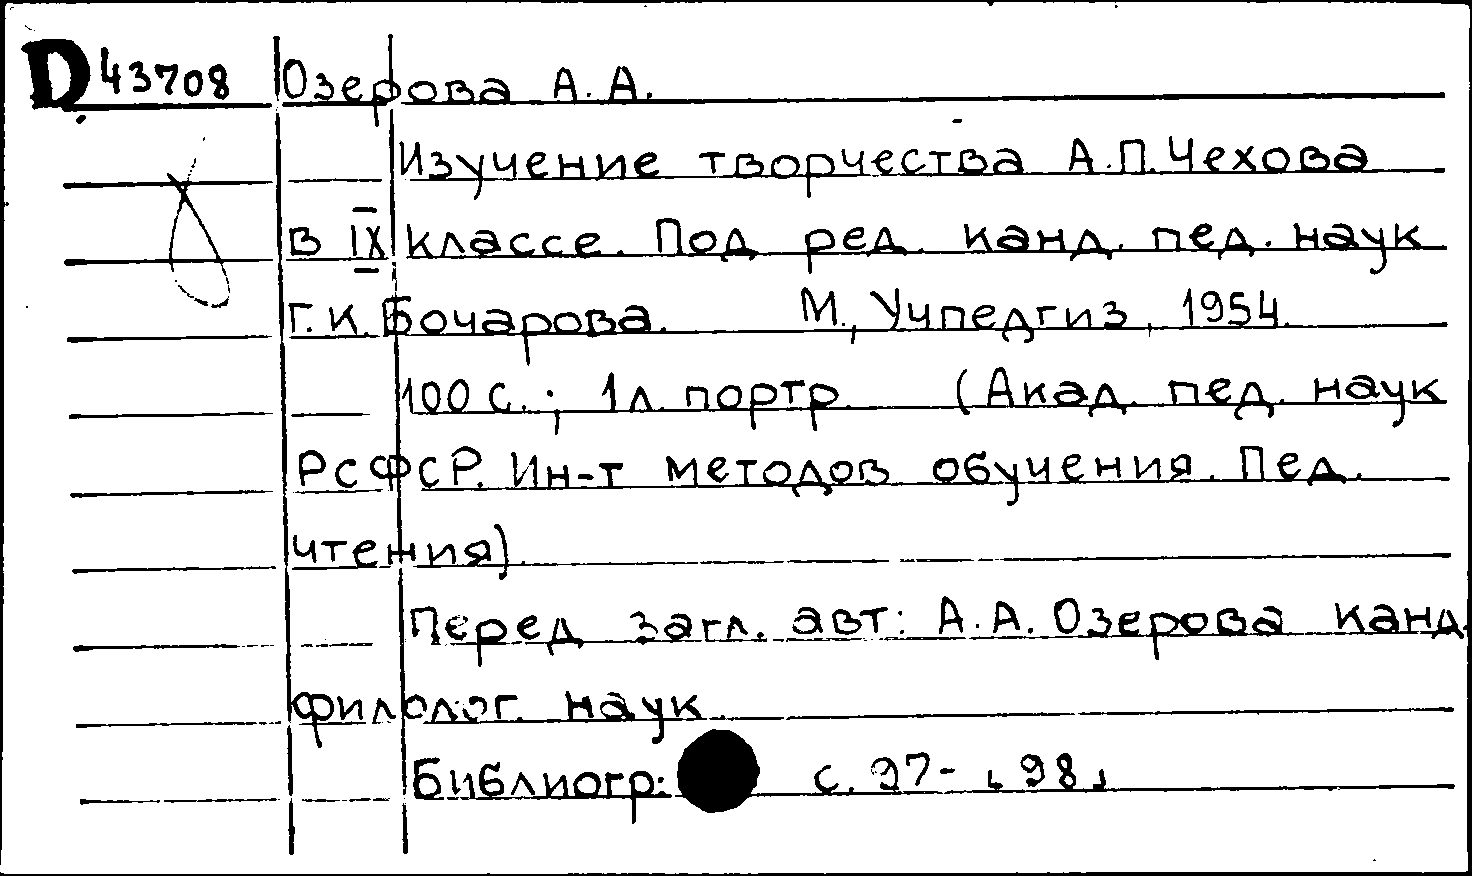 D 43708 Озерова А. А.
Изучение творчества А.П. Чехова
в IX классе. Под ред. канд. пед. наук
Г. К. Бочарова. М., Учпедгиз, 1954.
100 с.; 1 л. портр. (Акад. пед. наук
РСФСР. Ин-т методов обучения. Пед.
чтения).
Перед загл. авт: А. А. Озерова канд.
филолог. наук.
Библиогр: с. 97- [98]